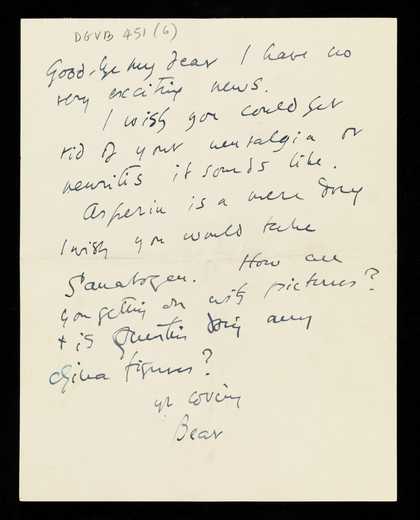 DGVB 451 (6)
Good-bye my dear I have no
very exciting news.
I wish you could get
rid of your neuralgia or
neuritis it sounds like.
Asperin is a mere drug
I wish you would take
Sanatogen. How are
you getting on with pictures?
+ is Quentin doing any
china figures?
yr loving
Bear